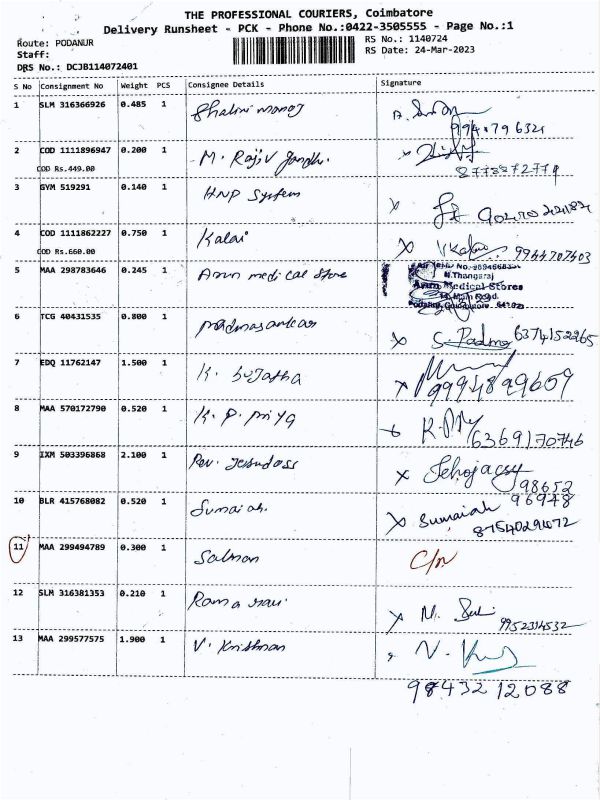 THE PROFESSIONAL COURIERS, Coimbatore
Delivery Runsheet - PCK - Phone No.:0422-3505555 - Page No.:1
Route: PODANUR
RS No.: 1140724
Staff:
RS Date: 24-Mar-2023
DRS No.: DCJB114072401
S No Consignment No Weight PCS Consignee Details Signature
1 SLM 316366926 0.485 1 Shalini manoj
2 COD 1111896947 0.200 1 M. Rajiv gandhi.
COD Rs.449.00
3 GYM 519291 0.140 1 HNP System
4 COD 1111862227 0.750 1 Kalai V Kalai 9944707403
COD Rs.660.00
5 MAA 298783646 0.245 1 Arun medical Store
N.Thangaraj
Arun Medical Stores
Main Road
6 TCG 40431535 0.800 1 S. Padma 6374152265
7 EDQ 11762147 1.500 1 K. Sujatha 9994899609
8 MAA 570172790 0.520 1 K. P. Priya K.P 6369170746
9 IXM 503396868 2.100 1 Rev. Jesudoss
98652
96948
10 BLR 415768082 0.520 1 Sumaiah. Sumaiah
11 MAA 299494789 0.300 1 Salman
12 SLM 316381353 0.210 1 M.
13 MAA 299577575 1.900 1 V. Krishnan V.
98432 12088